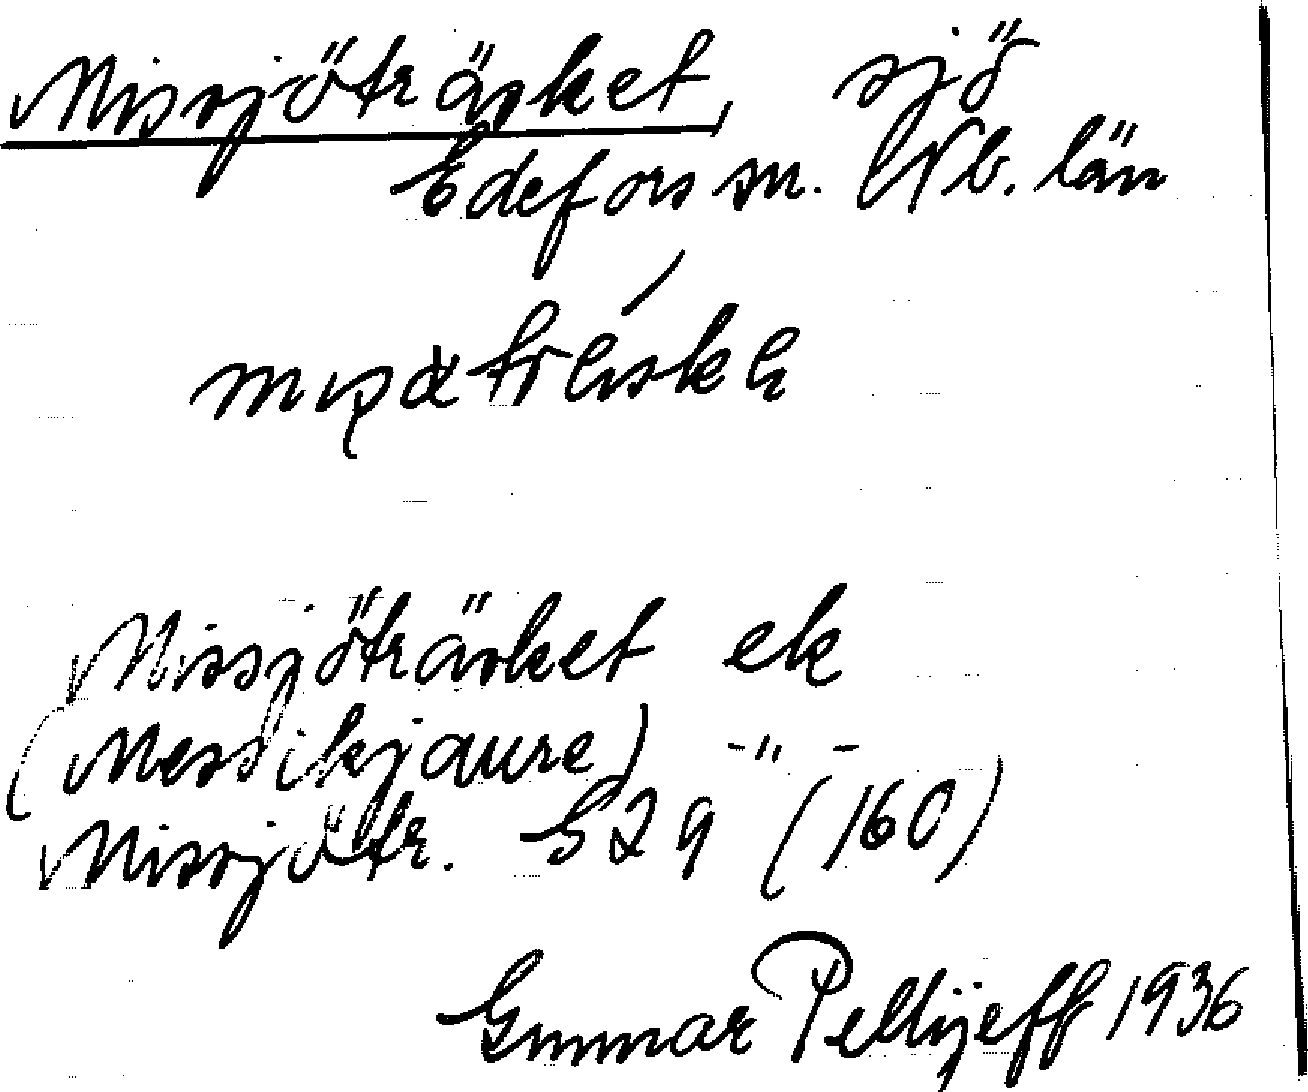 Missjöträsket, sjö
Edefors sn. Nb. län
Missjöträsket ek
(Messikjaure) -"-
Missjötr. G29 (160)
Gunnar Pellijeff 1936